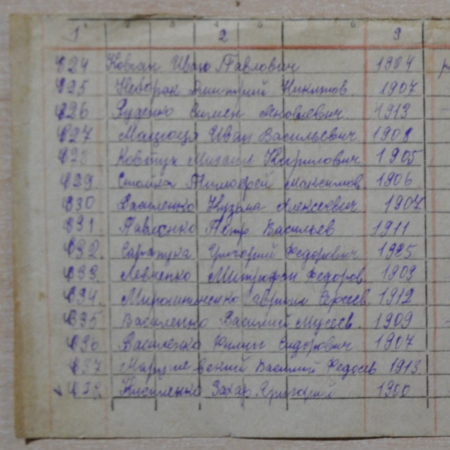 1 2 3
924 Ковган Иван Павлович 1904
925 Неборак Дмитрий Никитов 1907
926 Руденко Семен Яковлевич 1913
927 Мацюця Иван Васильевич 1901
928 Ковбтук Михаил Кирилович 1905
929 Стойла Тимофей Максимов 1906
930 Василенко Кузьма Алексеевич 1907
931 Павленко Петр Васильев 1911
932 Григорий Федорович 1925
933 Левченко Митрофан Федоров 1909
934 Мирошниченко Сергеев 1912
935 Василенко Василий Мусеев 1909
936 Василенко Филипп Сидорович 1907
937 Василий Федосев 1913
938 Кисиленко Захар Григорий 1900